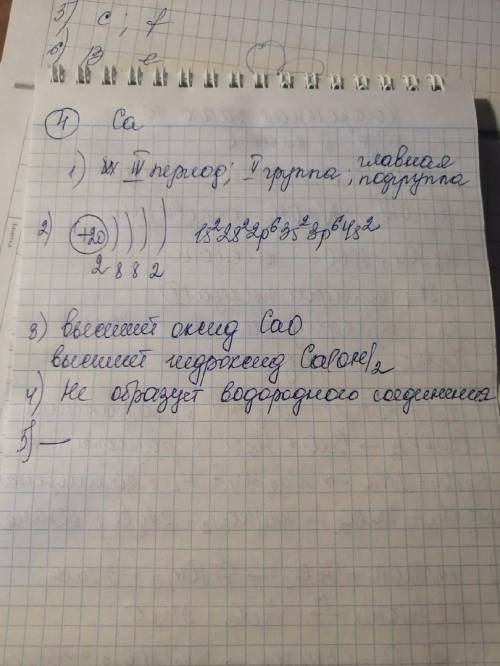 5) c ; f
6) B e
4 Ca
1) IV период; II группа, главная
подгруппа
2) +20 ) ) ) ) 1s²2s²2p⁶3s²3p⁶4s²
2 8 8 2
3) высший оксид CaO
высший гидроксид Ca(OH)₂
4) Не образует водородного соединения
5) —